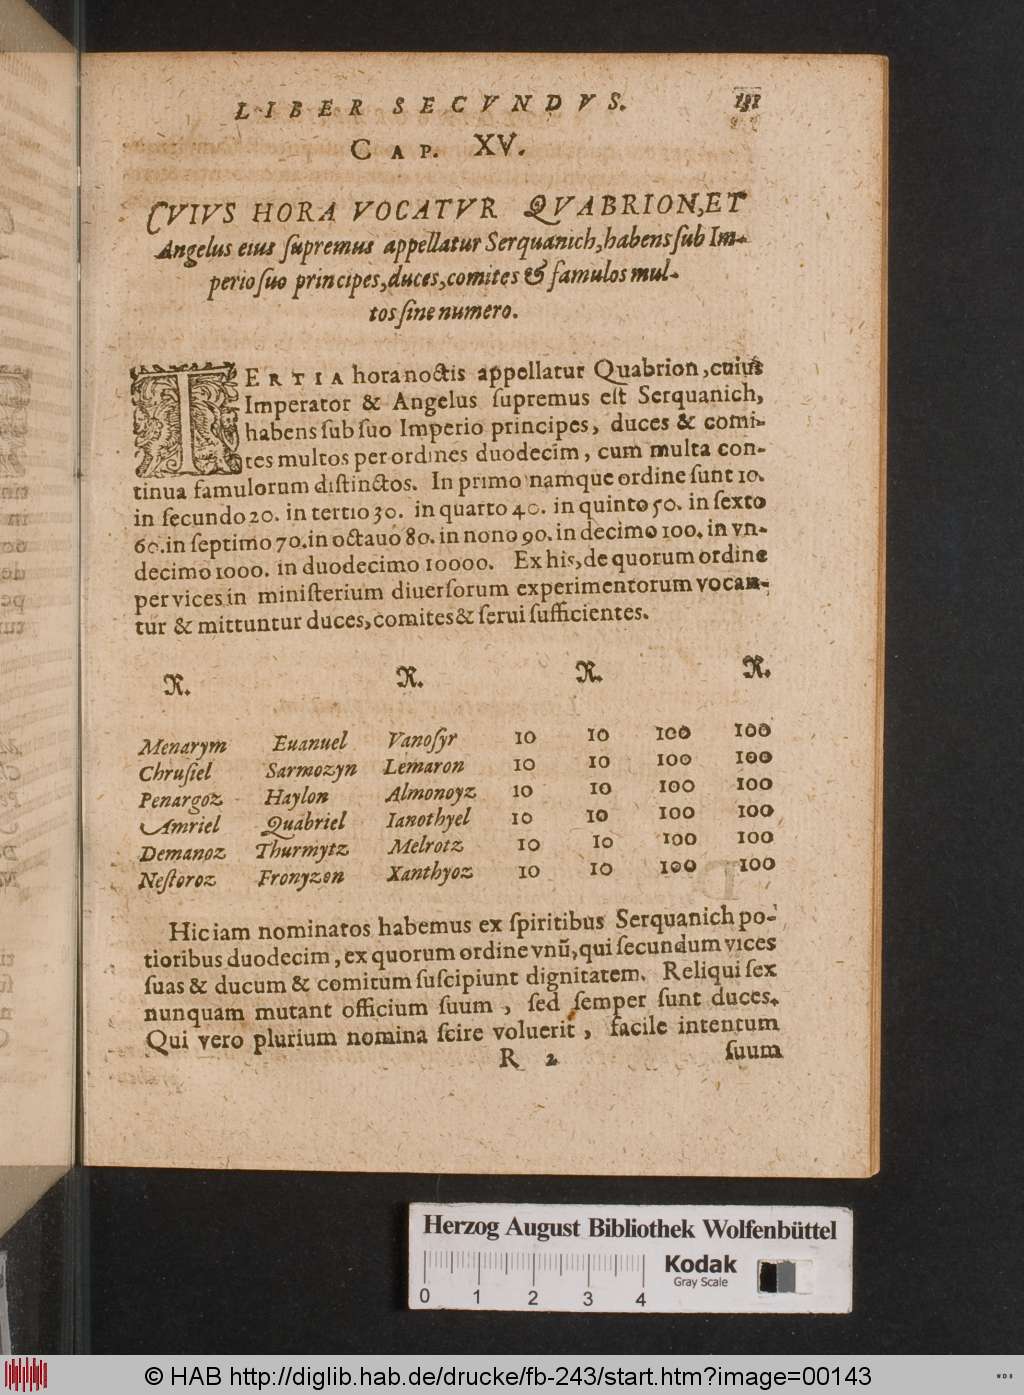 LIBER SECVNDVS. 131
CAP. XV.
CVIVS HORA VOCATVR QVABRION, ET
Angelus eius ſupremus appellatur Serquanich, habens ſub Im-
perio ſuo principes, duces, comites & famulos mul-
tos ſine numero.
TERTIA hora noctis appellatur Quabrion, cuius
Imperator & Angelus ſupremus eſt Serquanich,
habens ſub ſuo Imperio principes, duces & comi-
tes multos per ordines duodecim, cum multa con-
tinua famulorum diſtinctos. In primo namque ordine ſunt 10.
in ſecundo 20. in tertio 30. in quarto 40. in quinto 50. in ſexto
60. in ſeptimo 70. in octauo 80. in nono 90. in decimo 100. in vn-
decimo 1000. in duodecimo 10000. Ex his, de quorum ordine
per vices in miniſterium diuerſorum experimentorum vocan-
tur & mittuntur duces, comites & ſerui ſufficientes.
R. R. R. R.
Menarym Euanuel Vanoſyr 10 10 100 100
Chruſiel Sarmozyn Lemaron 10 10 100 100
Penargoz Haylon Almonoyz 10 10 100 100
Amriel Quabriel Ianothyel 10 10 100 100
Demanoz Thurmytz Melrotz 10 10 100 100
Neſtoroz Fronyzon Xanthyoz 10 10 100 100
Hic iam nominatos habemus ex ſpiritibus Serquanich po-
tioribus duodecim, ex quorum ordine vnũ, qui ſecundum vices
ſuas & ducum & comitum ſuſcipiunt dignitatem. Reliqui ſex
nunquam mutant officium suum, ſed ſemper ſunt duces.
Qui vero plurium nomina ſcire voluerit, facile intentum
R 2 ſuum
Herzog August Bibliothek Wolfenbüttel
Kodak
Gray Scale
0 1 2 3 4
© HAB http://diglib.hab.de/drucke/fb-243/start.htm?image=00143